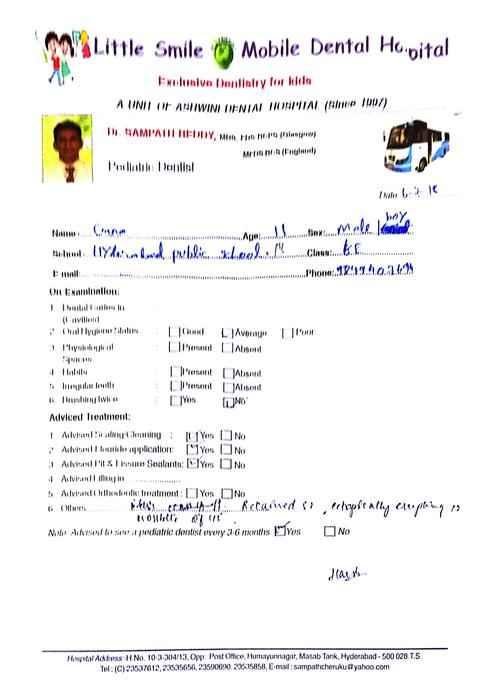 Little Smile Mobile Dental Hospital
Exclusive Dentistry for kids
A UNIT OF ASHWINI DENTAL HOSPITAL (Since 1997)
Dr. SAMPATH REDDY,
(England)
Pediatric Dentist
Date 6-2-18
Name: Age: 11 Sex: Male boy
School: Hyderabad public school. Class:
E mail: Phone:
On Examination:
1 Dental Caries in
(Cavities)
2 Oral Hygiene Status : Good Average Poor
3 Physiological : Present Absent
Spaces
4 Habits : Present Absent
5 Irregular teeth : Present Absent
6 Brushing twice : Yes No
Adviced Treatment:
1 Advised Scaling Cleaning : Yes No
2 Advised Fluoride application: Yes No
3 Advised Pit & Fissure Sealants: Yes No
4 Advised Filling in
5 Advised Orthodontic treatment : Yes No
6 Others Retained ectopically erupting
Note: Advised to see a pediatric dentist every 3-6 months Yes No
Hospital Address: H.No. 10-3-304/13, Opp. Post Office, Humayunnagar, Masab Tank, Hyderabad - 500 028 T.S.
Tel.: (C) 23537612, 23535656, 23590690, 23535858, E-mail : sampathcheruku@yahoo.com